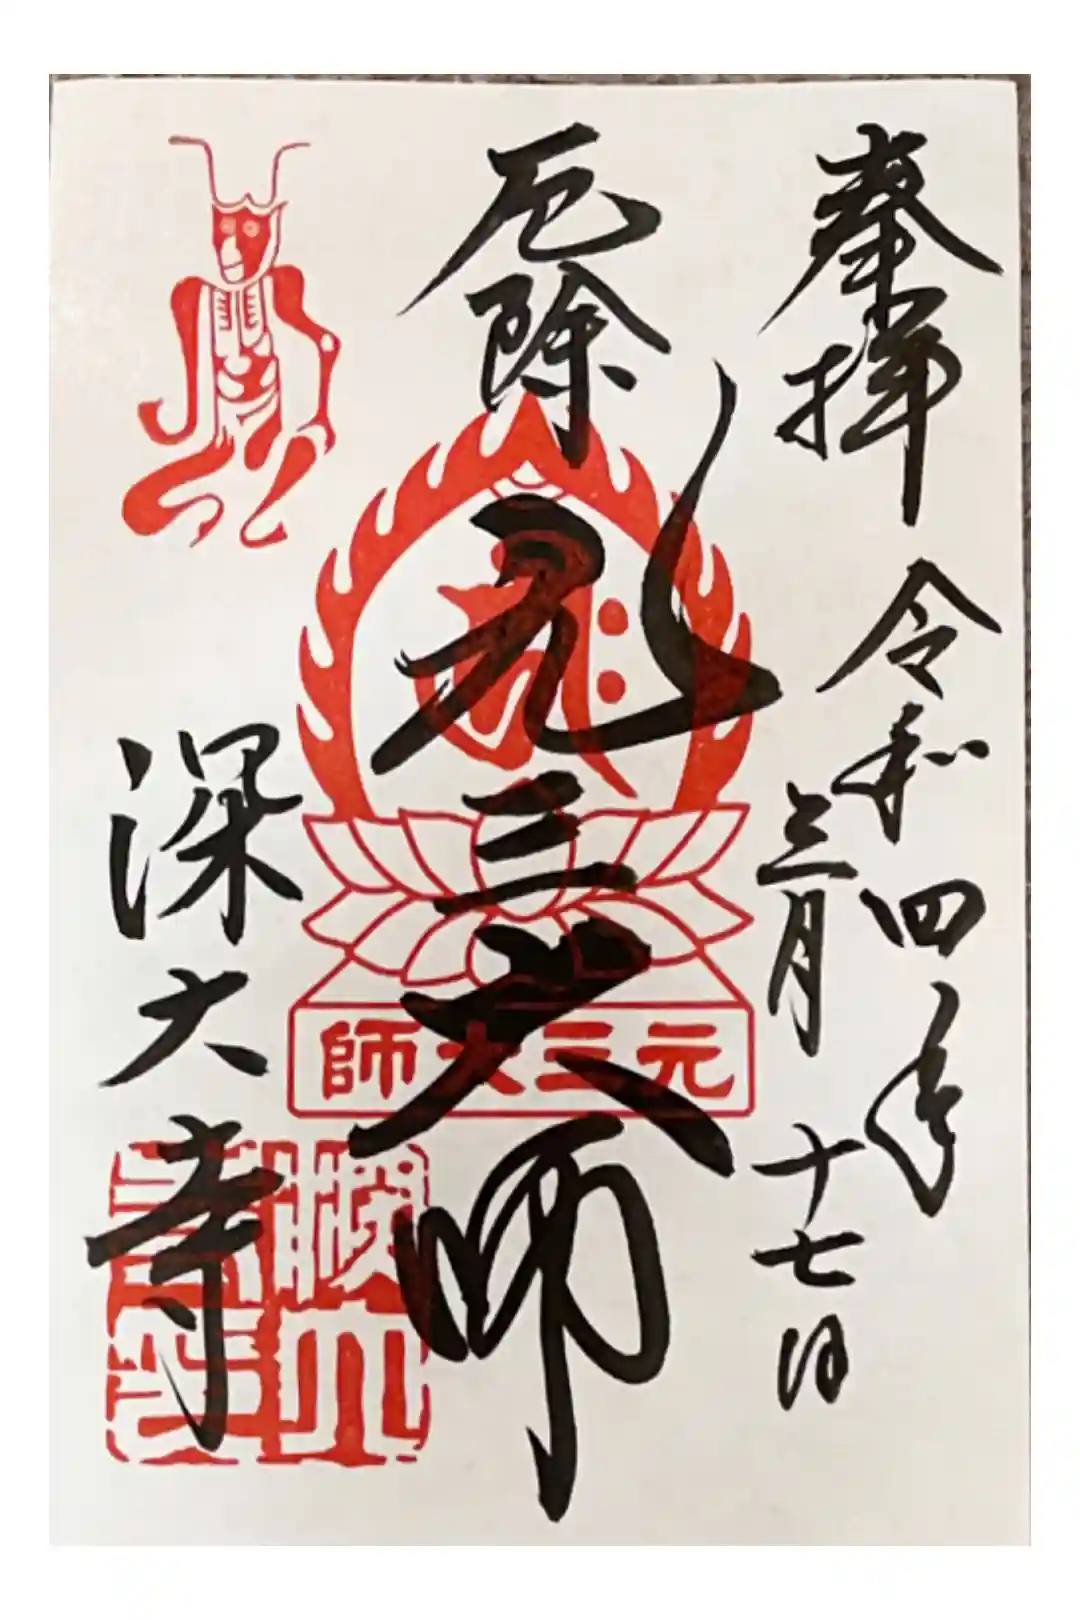 奉拝
令和四年
三月十七日
厄除
元三大師
元三大師
深大寺